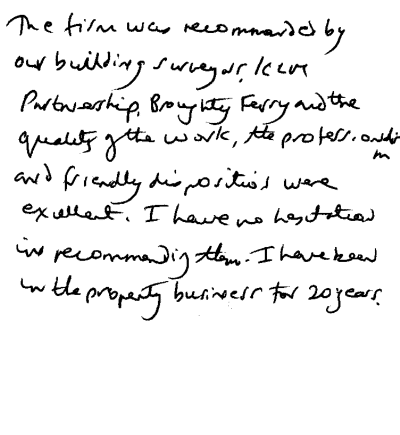 The firm was recommended by
our building surveyors,
Partnership, Broughty Ferry and the
quality of the work, the professionalis
m
and friendly disposition were
excellent. I have no hesitation
in recommending them. I have been
in the property business for 20 years.